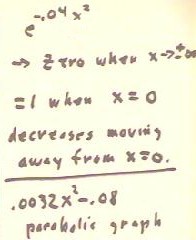 e^-.04 x^2
→ zero when x → ±∞
= 1 when x = 0
decreases moving
away from x = 0.
.0032 x^2 - .08
parabolic graph